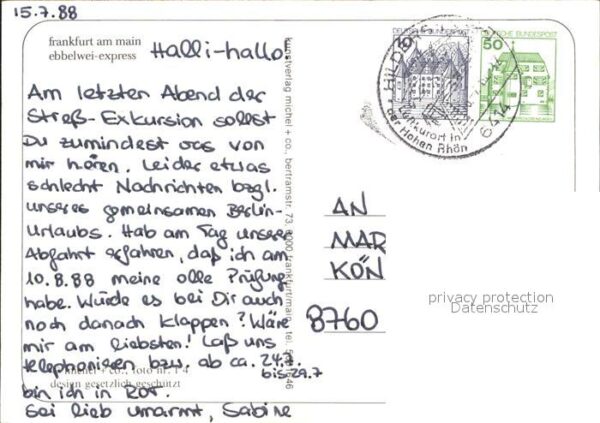 15.7.88
frankfurt am main
ebbelwei-express
Halli-hallo
Am letzten Abend der
Streß-Exkursion sollst
Du zumindest was von
mir hören. Leider etwas
schlecht Nachrichten bzgl.
unseres gemeinsamen Berlin-
Urlaubs. Hab am Tag unserer
Abfahrt erfahren, daß ich am
10.8.88 meine olle Prüfung
habe. Würde es bei Dir auch
noch danach klappen? Wäre
mir am liebsten! Laß uns
telephonieren bzw. ab ca. 24.7.
bis 29.7
bin ich in ROT.
Sei lieb umarmt, Sabine
foto nr.
design gesetzlich geschützt
kunstverlag michel + co., bertramstr. 73, 6000 frankfurt/main, tel.
50
DEUTSCHE BUNDESPOST
HILD
6414
Luftkurort in
der Hohen Rhön
AN
MAR
KÖN
8760
privacy protection
Datenschutz